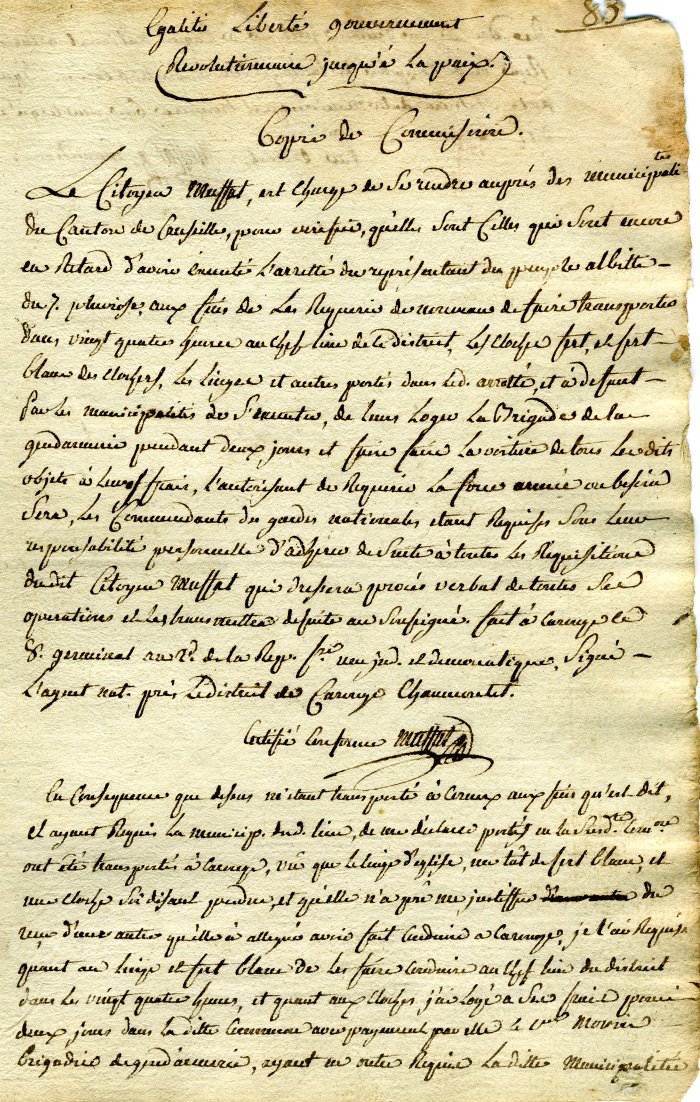 83
Egalité Liberté gouvernement
Révolutionnaire jusqu'à la paix.
Coppie de Commission.
Le Citoyen Muffat, est Chargé de se rendre auprés des municipalités
du Canton de Cruseille, pour vérifier, qu'elles sont Celles qui sont encore
en Retard d'avoir éxecuté L'arretté du représentant du peuple albitte
du 7. pluviose, aux fins de Les Requerir de nouveau de faire transporter
dans vingt quatre heures au chef lieu de ce district, Les Cloches fert, et fert
blanc des clochers, Les Linges et autres portés dans led. arretté, et à defaut
Par Les municipalités de s'executer, de leurs Loger La Brigade de la
gendarmerie pendant deux jours et faire faire La voiture de tous Les dits
objets à Leurs frais, L'autorisant de Requerir La force armée ou besoin
sera, Les Commandants des gardes nationales etant Requises sous leur
responsabilité personnelle d'adhérer de suite à toutes Les Réquisitions
du dit Citoyen Muffat qui dressera procés verbal de toutes Ses
operations et Les transmettra de suite au Soussigné. fait à Carouge Le
8. germinal an 2.d de la Rep. f.se une ind. et democratique, Signé
L'agent nat. prés Le district de Carouge Chaumontet.
Certifié Conforme Muffat
En Consequence que dessus m'etant transporté à Cerneux aux fins qu'est dit,
et ayant Requis La municip. dud. lieu, de me déclarer portés en la Susd.
ont été transportés à Carouge, vû que le linge d'eglise, un tât de fert blanc, et
une cloche Soi disant perdue, et qu'elle n'a pû me justiffier du
reçu d'une autre qu'elle à allegué avoir fait Conduire a Carouge, je l'ai Requise
quant au linge et fert blanc de Les faire Conduire au Chef lieu du district
dans Les vingt quatre heures, et quant aux Cloches j'ai Logé a Ses frais pour
deux jours dans la ditte Commune avec payement par elle le
Brigadier de gendarmerie, ayant en outre Requis La ditte Municipalité